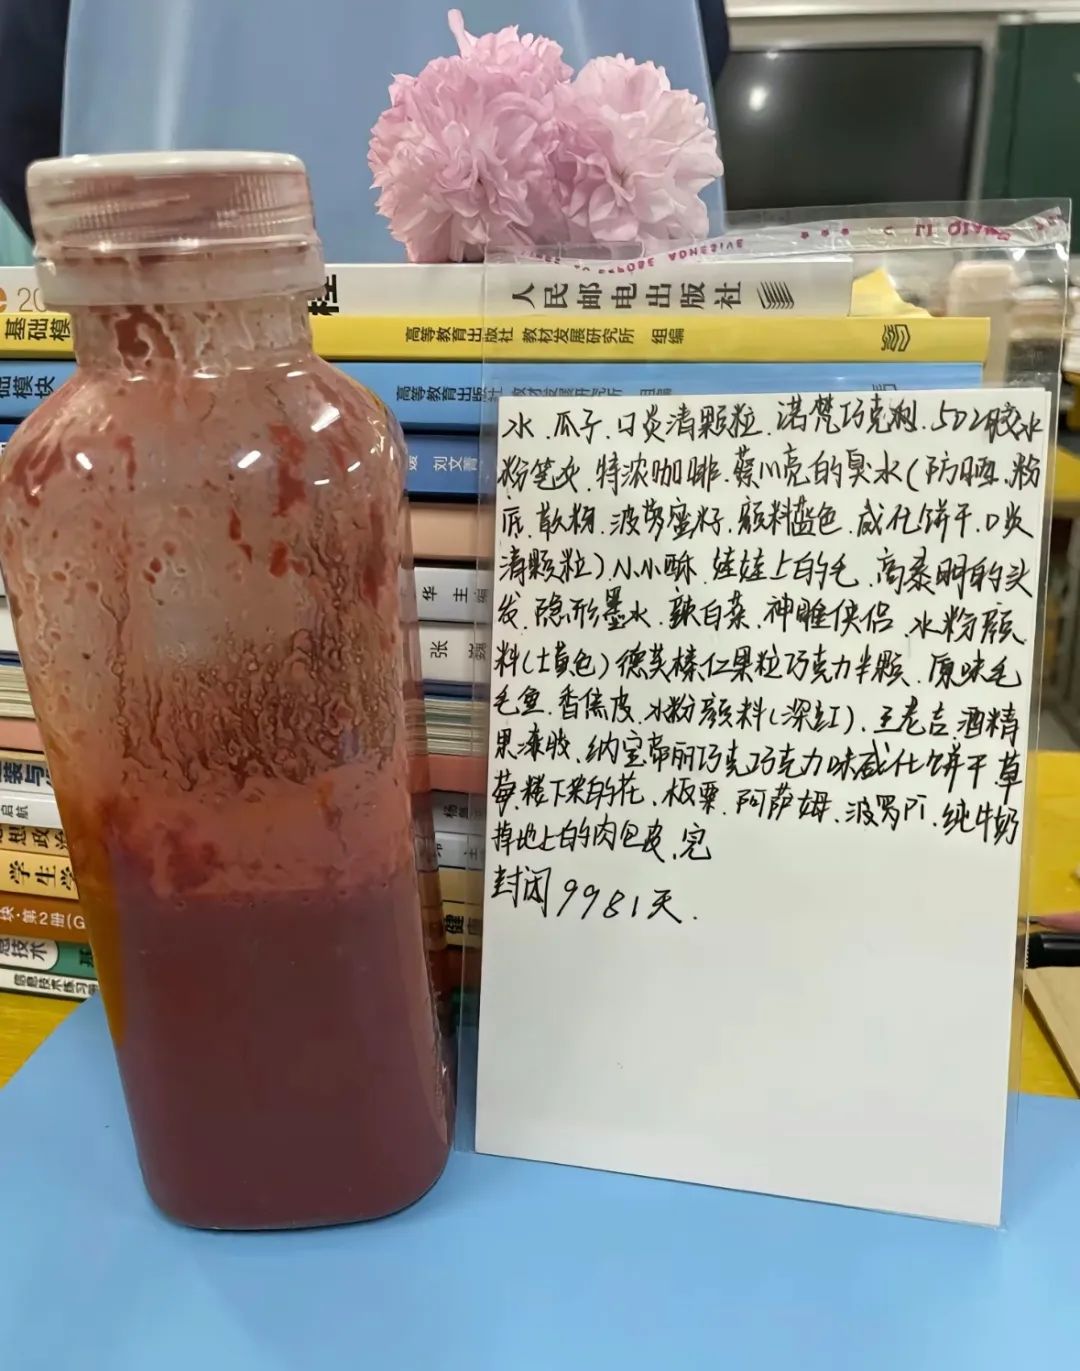 人民邮电出版社
基础模
高等教育出版社 教材发展研究所 组编
础模块
高等教育出版社
刘文菁
华 主 编
张 巍
水、瓜子、口炎清颗粒、诺梵巧克利、502胶水
粉笔灰、特浓咖啡、蔡川亮的臭水(防晒、粉
底、散粉、波萝蜜籽、颜料蓝色、威化饼干、口炎
清颗粒)小小酥、娃娃上的毛、高泰明的头
发、隐形墨水、辣白菜、神雕侠侣、水粉颜
料(土黄色)德芙榛仁果粒巧克力半颗、原味毛
毛鱼、香焦皮、水粉颜料(深红)、王老吉、酒精
果漆胶、纳宝帝丽巧克巧克力味威化饼干、草
莓、楼下来的花、板栗、阿萨姆、波罗门、纯牛奶
掉地上的肉包皮、完
封闭9981天.
装与
启航
想政治
学生学
块·第2册(G
息技术
信息技术练习册
健康